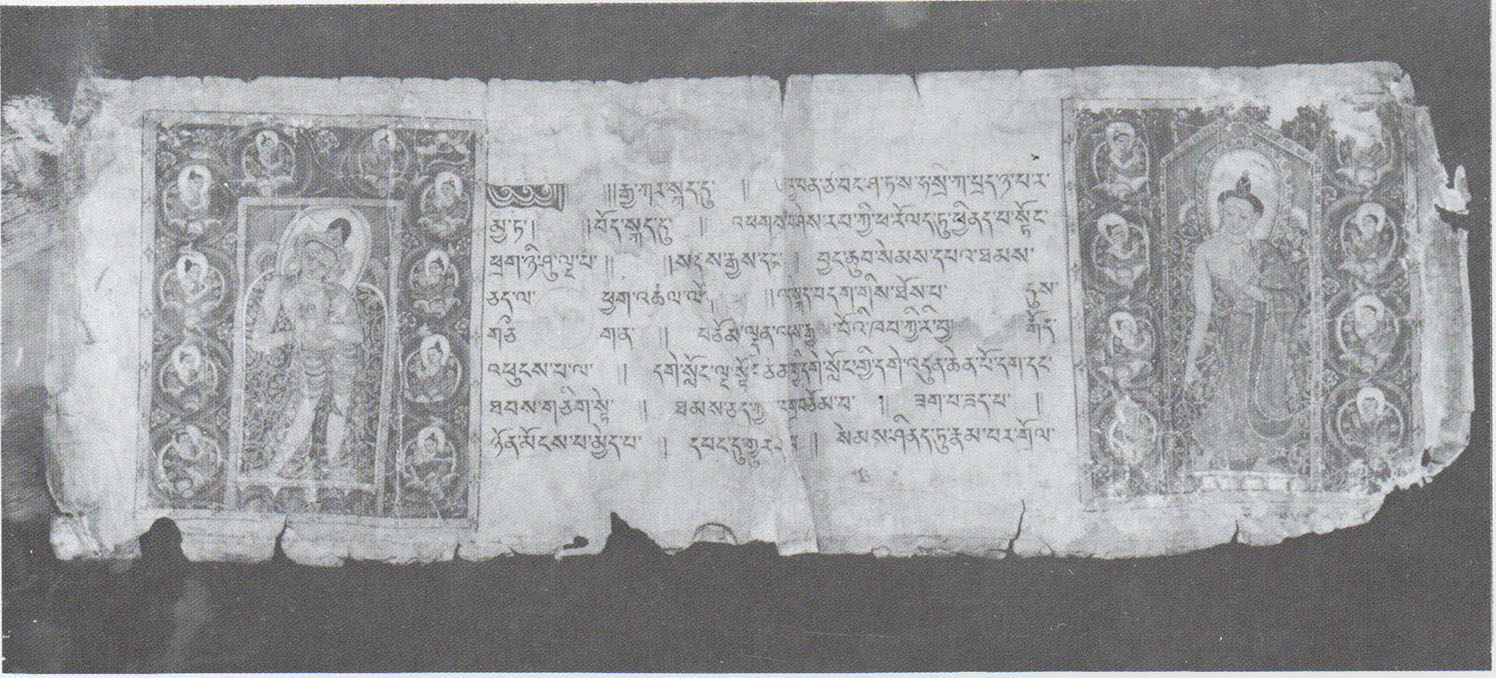 ༄༅༅།། །།རྒྱ་ཀར་སྐད་དུ་ །། པན་ཙ་བིང་ཤ་ཏས་ཧ་སྲི་ཀ་པྲད་ཉ་པ་ར་
མྱི་ཏ། །།བོད་སྐད་དུ །། འཕགས་ཤེས་རབ་ཀྱི་ཕ་རོལད་ཏུ་ཕྱིནད་པ་སྟོང་
ཕྲག་ཉི་ཤུ་ལྔ་པ།། །།སངས་རྒྱས་དང་ བྱང་ཆུབ་སེམས་དཔའ་ཐམས་
ཅད་ལ་ ཕྱག་འཚལ་ལོ།། །། སྐད་བདག་གིས་ཐོས་པ་ དུས་
གཅིག ན་ །། བཅོམ་ལྡན་འདས་རྒྱལ་པོའི་ཁབ་ཀྱི་རི་བྱི་ རྒོད་
འཕུངས་པ་ལ་ །། དགེ་སློང་ལྔ་སྟོང་ དགེ་སློང་གྱི་དགེ་འདུན་ཆེན་པོ་དག་དང་
ཐབས་གཅིག་སྟེ་ །། ཐམས་ཅད་ཀྱང་ དགྲ་བཅོམ་པ་ །། ཟག་པ་ཟད་པ་ །
ཉོན་མོངས་པ་མྱེད་པ་ །། དབང་དུ་གྱུར་པ །། སེམས་ཤིནད་ཏུ་རྣམ་པར་གྲོལ་